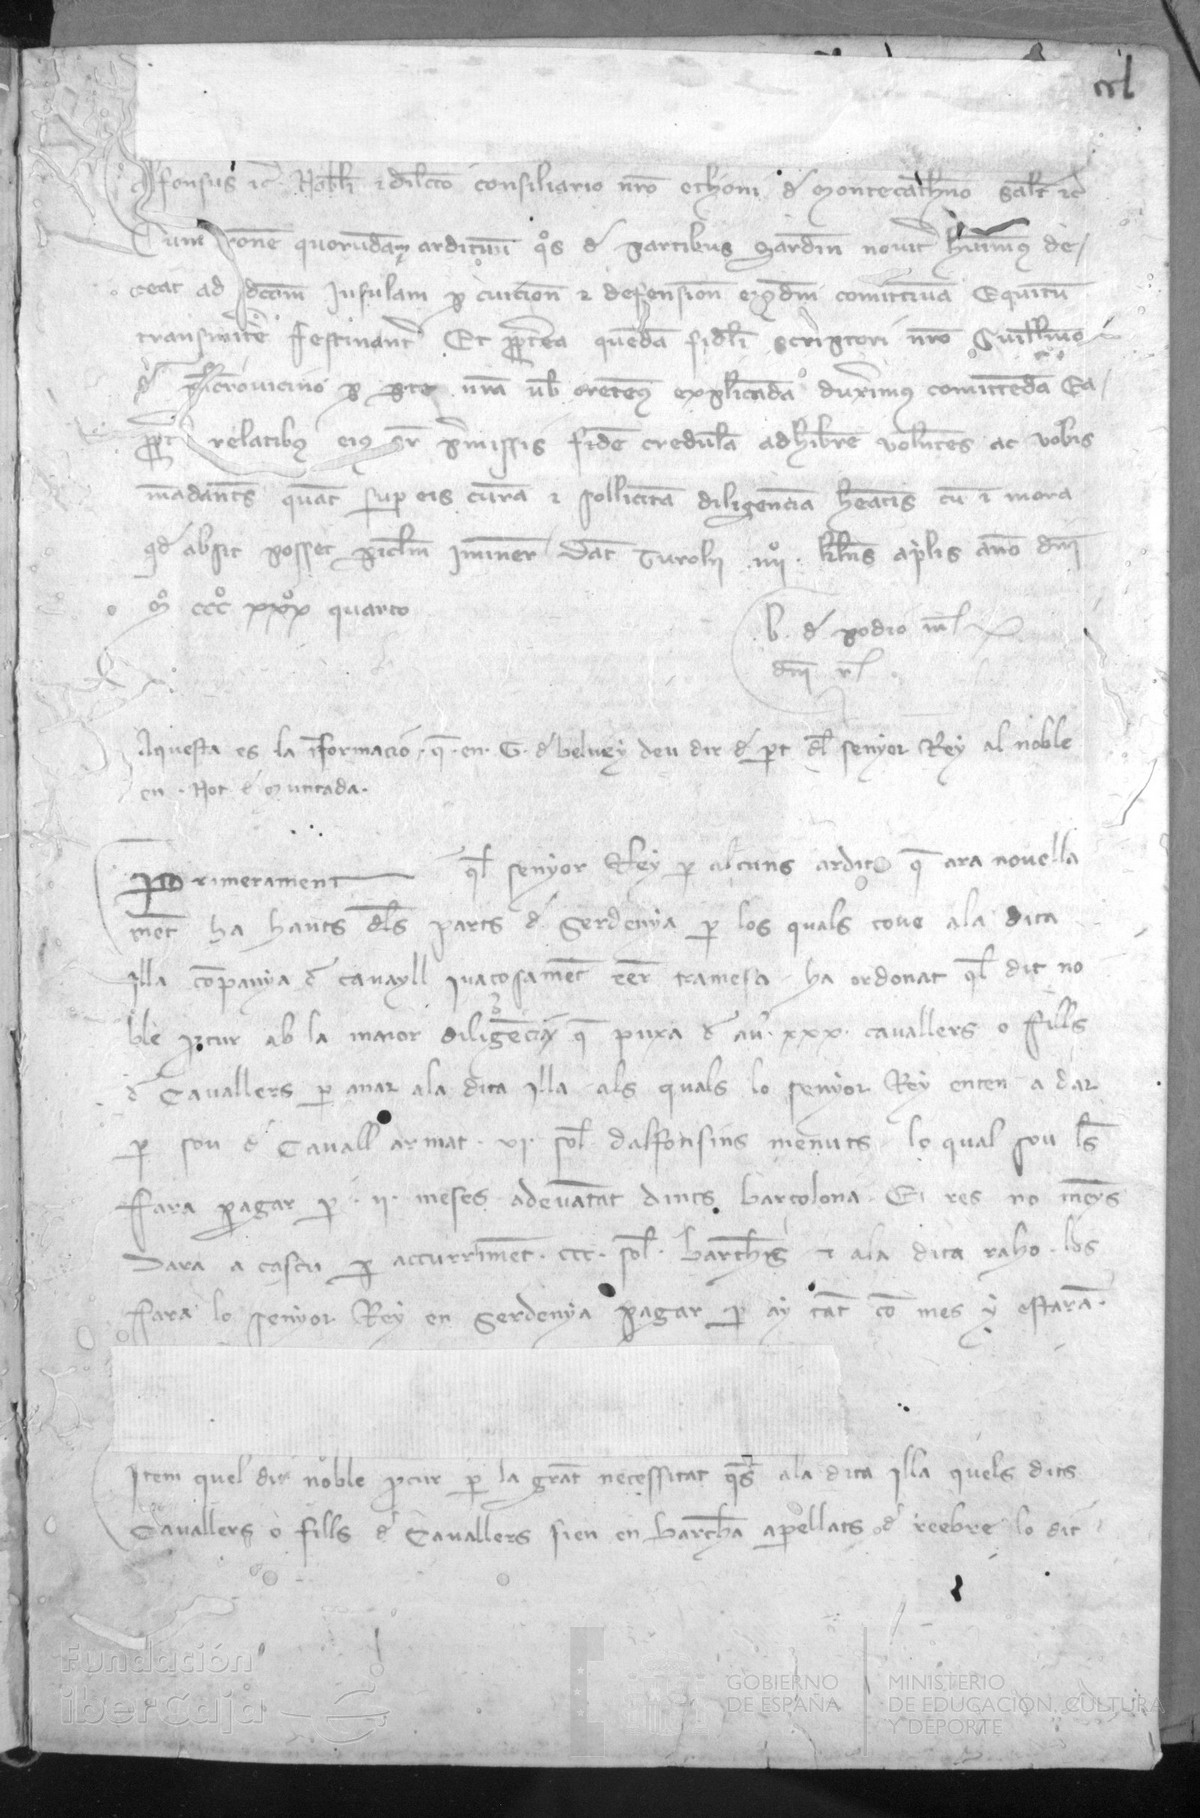 crl
Alfonsus etc. Nobli et dilcto consiliario nro othoni de Montecatheno Salt etc
Cum rone quorundam ardituum qos de partibus Sardin novit huimus de-
ceat ad dcam Insulam p tuicion et defension eiusdm comittiva Equitu
transmitte festinant Et pptea queda fidli scriptori nro Guillmo
de pulcrovicino p pte nra vb oretens explicanda duximus comittenda Ea-
ppt relatibus eius sr pmissis fide credula adhibre volutes ac vobis
madantes quat sup eis cura et sollicita diligencia heatis cu i mora
qd absit posset piclm Iminer Dat Turolii iiiio klns aplis ano dni
Mo cccº xxxº quarto
b. de podio m
dni r
Aquesta es la informacio. q. en. G. de belvey deu dir de pt dl senyor Rey al noble
en. Not de Muntcada.
Primerament ql senyor Rey p alcuns ardits q ara novella
ment ha hauts dls parts de Serdenya p los quals cove ala dita
Illa copanya de cavayll Ivacosamet eer tramesa ha ordonat ql dit no
ble pcur ab la maior diligencia q puxa de aut xxx. cavallers o fills
de Cavallers p anar ala dita Illa als quals lo senyor Rey enten a dar
p sou de Cavall armat. vi. sol. dalfonsins menuts lo qual sou ls
fara pagar p. ii. meses adevatat dins barcelona. Et res no meys
Dara a cascu p accurrimet. ccc. sol. barchs et ala dita raho. los
fara lo senyor Rey en Serdenya pagar p ay tat co mes y estara.
Item quel dit noble pcur p la grat necessitat qs ala dita Illa quels dits
Cavallers o fills de Cavallers sien en barcha apellats de reebre lo dit
Fundación
iberCaja
GOBIERNO
DE ESPAÑA
MINISTERIO
DE EDUCACIÓN, CULTURA
Y DEPORTE